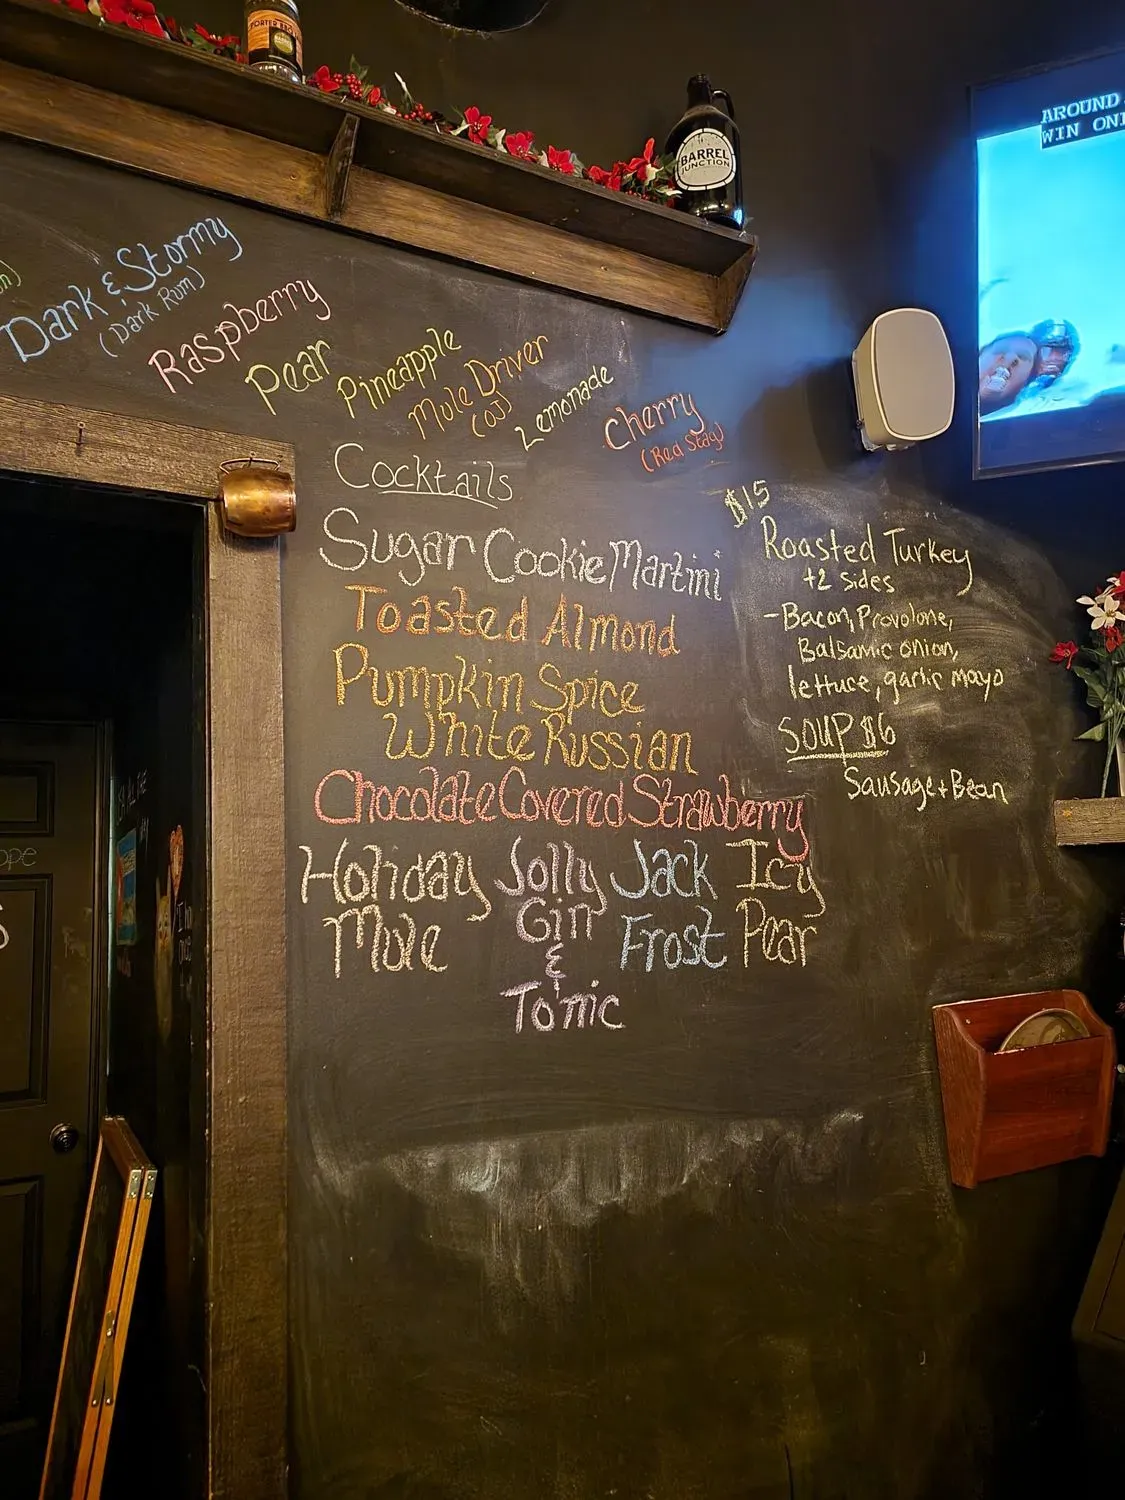 PORTER BBQ
BARREL
JUNCTION
AROUND
WIN ON
Dark & Stormy
(Dark Rum)
Raspberry
Pear
Pineapple
Mule Driver
(OJ)
Lemonade
Cherry
(Red Stag)
Cocktails
Sugar Cookie Martini
Toasted Almond
Pumpkin Spice
White Russian
Chocolate Covered Strawberry
Holiday
Mule
Jolly
Gin
&
Tonic
Jack
Frost
Icy
Pear
$15
Roasted Turkey
+2 sides
-Bacon, Provolone,
Balsamic onion,
lettuce, garlic mayo
SOUP $6
Sausage + Bean